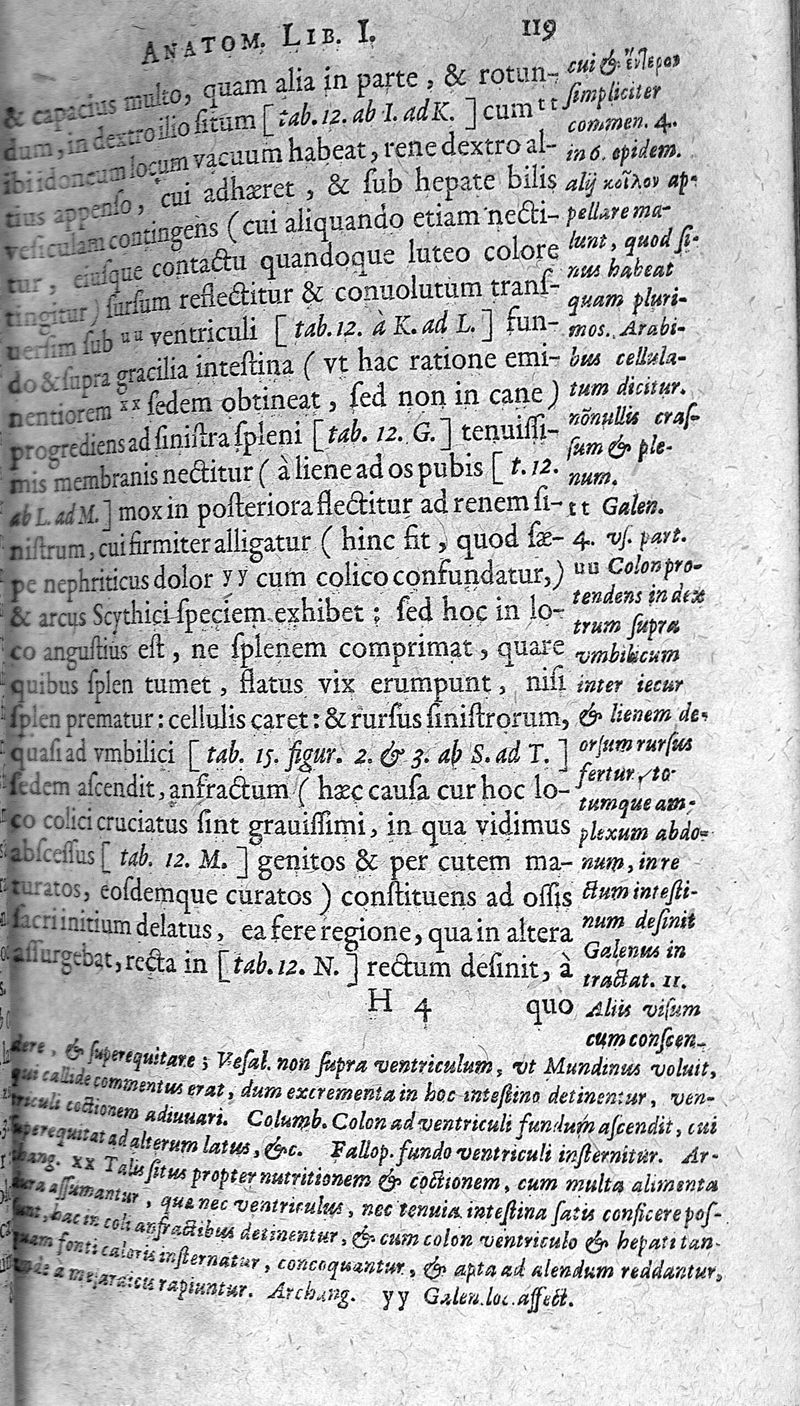 ANATOM. LIB. I. 119
& capacius multo, quam alia in parte, & rotun-
dum, in dextro ilio ſitum [tab. 12. ab I. ad K.] cum tt
ibi idoneum locum vacuum habeat, rene dextro al-
tius appenſo, cui adhæret, & ſub hepate bilis
veſiculam contingens (cui aliquando etiam necti-
tur, eiuſque contactu quandoque luteo colore
tingitur) ſurſum reflectitur & conuolutum tranſ-
uerſim ſub uu ventriculi [tab. 12. à K. ad L.] fun-
do & ſupra gracilia inteſtina (vt hac ratione emi-
nentiorem xx ſedem obtineat, ſed non in cane)
progrediens ad ſiniſtra ſpleni [tab. 12. G.] tenuiſſi-
mis membranis nectitur (à liene ad os pubis [t. 12.
ab L. ad M.] mox in poſteriora flectitur ad renem ſi-
niſtrum, cui firmiter alligatur (hinc fit, quod ſæ-
pe nephriticus dolor yy cum colico confundatur,)
& arcus Scythici ſpeciem exhibet: ſed hoc in lo-
co anguſtius eſt, ne ſplenem comprimat, quare
quibus ſplen tumet, flatus vix erumpunt, niſi
ſplen prematur: cellulis caret: & rurſus ſiniſtrorum,
quaſi ad vmbilici [tab. 15. figur. 2. & 3. ab S. ad T.]
ſedem aſcendit, anfractum (hæc cauſa cur hoc lo-
co colici cruciatus ſint grauiſſimi, in qua vidimus
abſceſſus [tab. 12. M.] genitos & per cutem ma-
turatos, eoſdemque curatos) conſtituens ad oſſis
ſacri initium delatus, ea fere regione, qua in altera
aſſurgebat, recta in [tab. 12. N.] rectum deſinit, à
H 4 quo
cui & ἔντερον
ſimpliciter
commen. 4.
in 6. epidem.
alij κοῖλον ap-
pellare ma-
lunt, quod ſi-
nus habeat
quam pluri-
mos. Arabi-
bus cellula-
tum dicitur.
nõnullis craſ-
ſum & ple-
num.
tt Galen.
4. vſ. part.
uu Colon pro-
tendens in dex
trum ſupra
vmbilicum
inter iecur
& lienem de-
orſum rurſus
fertur, to-
tumque am-
plexum abdo-
num, in re
ctum inteſti-
num deſinit
Galenus in
tractat. 11.
Aliis viſum
cum conſcen-
dere, & ſuperequitare; Veſal. non ſupra ventriculum, vt Mundinus voluit,
qui callide commentus erat, dum excrementa in hoc inteſtino detinentur, ven-
triculi coctionem adiuuari. Columb. Colon ad ventriculi fundum aſcendit, cui
ſuperequitat ad alterum latus, &c. Fallop. fundo ventriculi inſternitur. Ar-
hang. xx Talis ſitus propter nutritionem & coctionem, cum multa alimenta
dura aſſumantur, quæ nec ventriculus, nec tenuia inteſtina ſatis conficere poſ-
ſunt, hac in coli anfractibus detinentur, & cum colon ventriculo & hepati tan-
quam fonti caloris inſternatur, concoquantur, & apta ad alendum reddantur,
à meſaraicis rapiuntur. Archang. yy Galen. loc. affect.